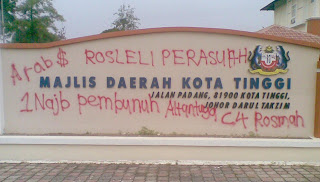 Arab $ ROSLELI PERASUHH
MAJLIS DAERAH KOTA TINGGI
JALAN PADANG, 81900 KOTA TINGGI,
1 Najb pembunuh Altantuya C4 Rosmah
JOHOR DARUL TAKZIM